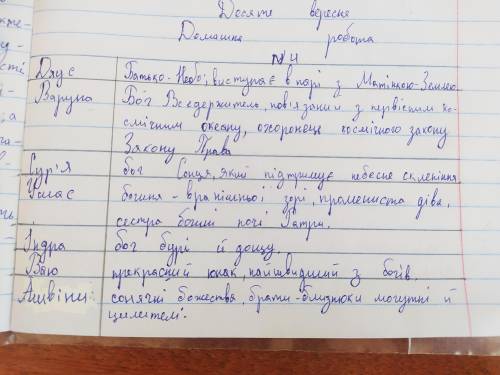 Десяте вересня
Домашня робота
№4
Дяус Батько-Небо; виступає в парі з Матінкою-Землею
Варуна Бог Вседержитель, пов'язаний з первісним ко-
смічним океану, охоронець космічного закону
Закону Права
Сур'я бог Сонця, який підтримує небесне склепіння
Ушас богиня - вранішньої зорі, промениста діва,
сестра богині ночі Ратри.
Індра бог бурі й дощу.
Ваю прекрасний юнак, найшвидший з богів.
Ашвіни: сонячні божества, брати-близнюки могутні й
цілителі.